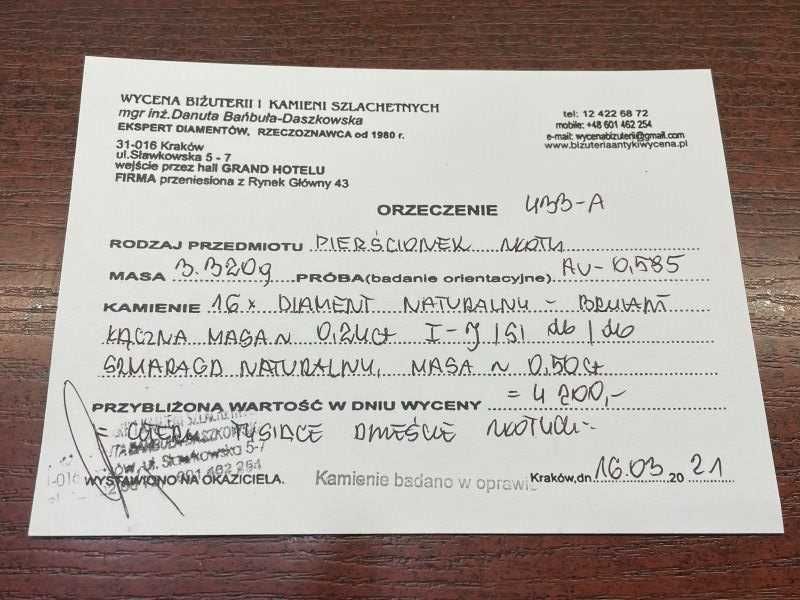 WYCENA BIŻUTERII I KAMIENI SZLACHETNYCH
mgr inż.Danuta Bańbuła-Daszkowska
EKSPERT DIAMENTÓW, RZECZOZNAWCA od 1980 r.
31-016 Kraków
ul.Sławkowska 5 - 7
wejście przez hall GRAND HOTELU
FIRMA przeniesiona z Rynek Główny 43
tel: 12 422 68 72
mobile: +48 601 462 254
e-mail: wycenabizuterii@gmail.com
www.bizuteriaantykiwycena.pl
ORZECZENIE 433-A
RODZAJ PRZEDMIOTU PIERŚCIONEK ZŁOTY
MASA 3.320g PRÓBA(badanie orientacyjne) AU-0,585
KAMIENIE 16 x DIAMENT NATURALNY - BRYLANT
ŁĄCZNA MASA ~ 0,24ct I-J/SI db/db
SZMARAGD NATURALNY, MASA ~ 0,50ct
PRZYBLIŻONA WARTOŚĆ W DNIU WYCENY = 4 200,-
= CZTERY TYSIĄCE DWIEŚCIE ZŁOTYCH-
ul. Sławkowska 5-7
601 462 254
WYSTAWIONO NA OKAZICIELA. Kamienie badano w oprawie Kraków,dn 16.03.20 21